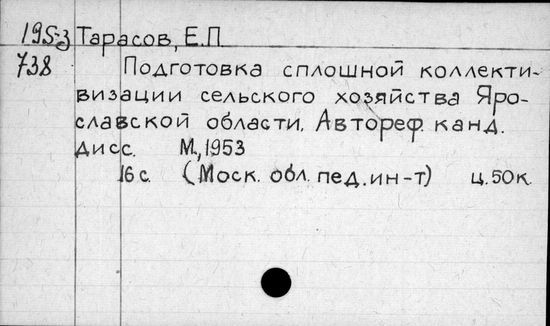 195-3 Тарасов, Е.П.
738 Подготовка сплошной коллекти-
визации сельского хозяйства Яро-
славской области. Автореф. канд.
дисс. М., 1953
16 с. (Моск. обл. пед. ин-т) ц. 50 к.